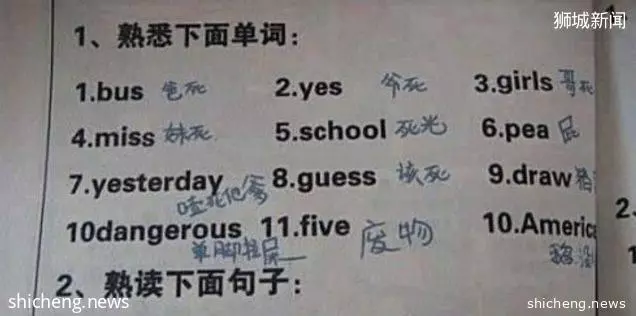 狮城新闻
1、熟悉下面单词：
1.bus 爸死 2.yes 爷死 3.girls 哥死
4.miss 妹死 5.school 死光 6.pea 屁
7.yesterday 8.guess 该死 9.draw
死他爹
10dangerous 11.five 废物 10.Americ
单脚拉屎
2、熟读下面句子：
shicheng.news shicheng.news